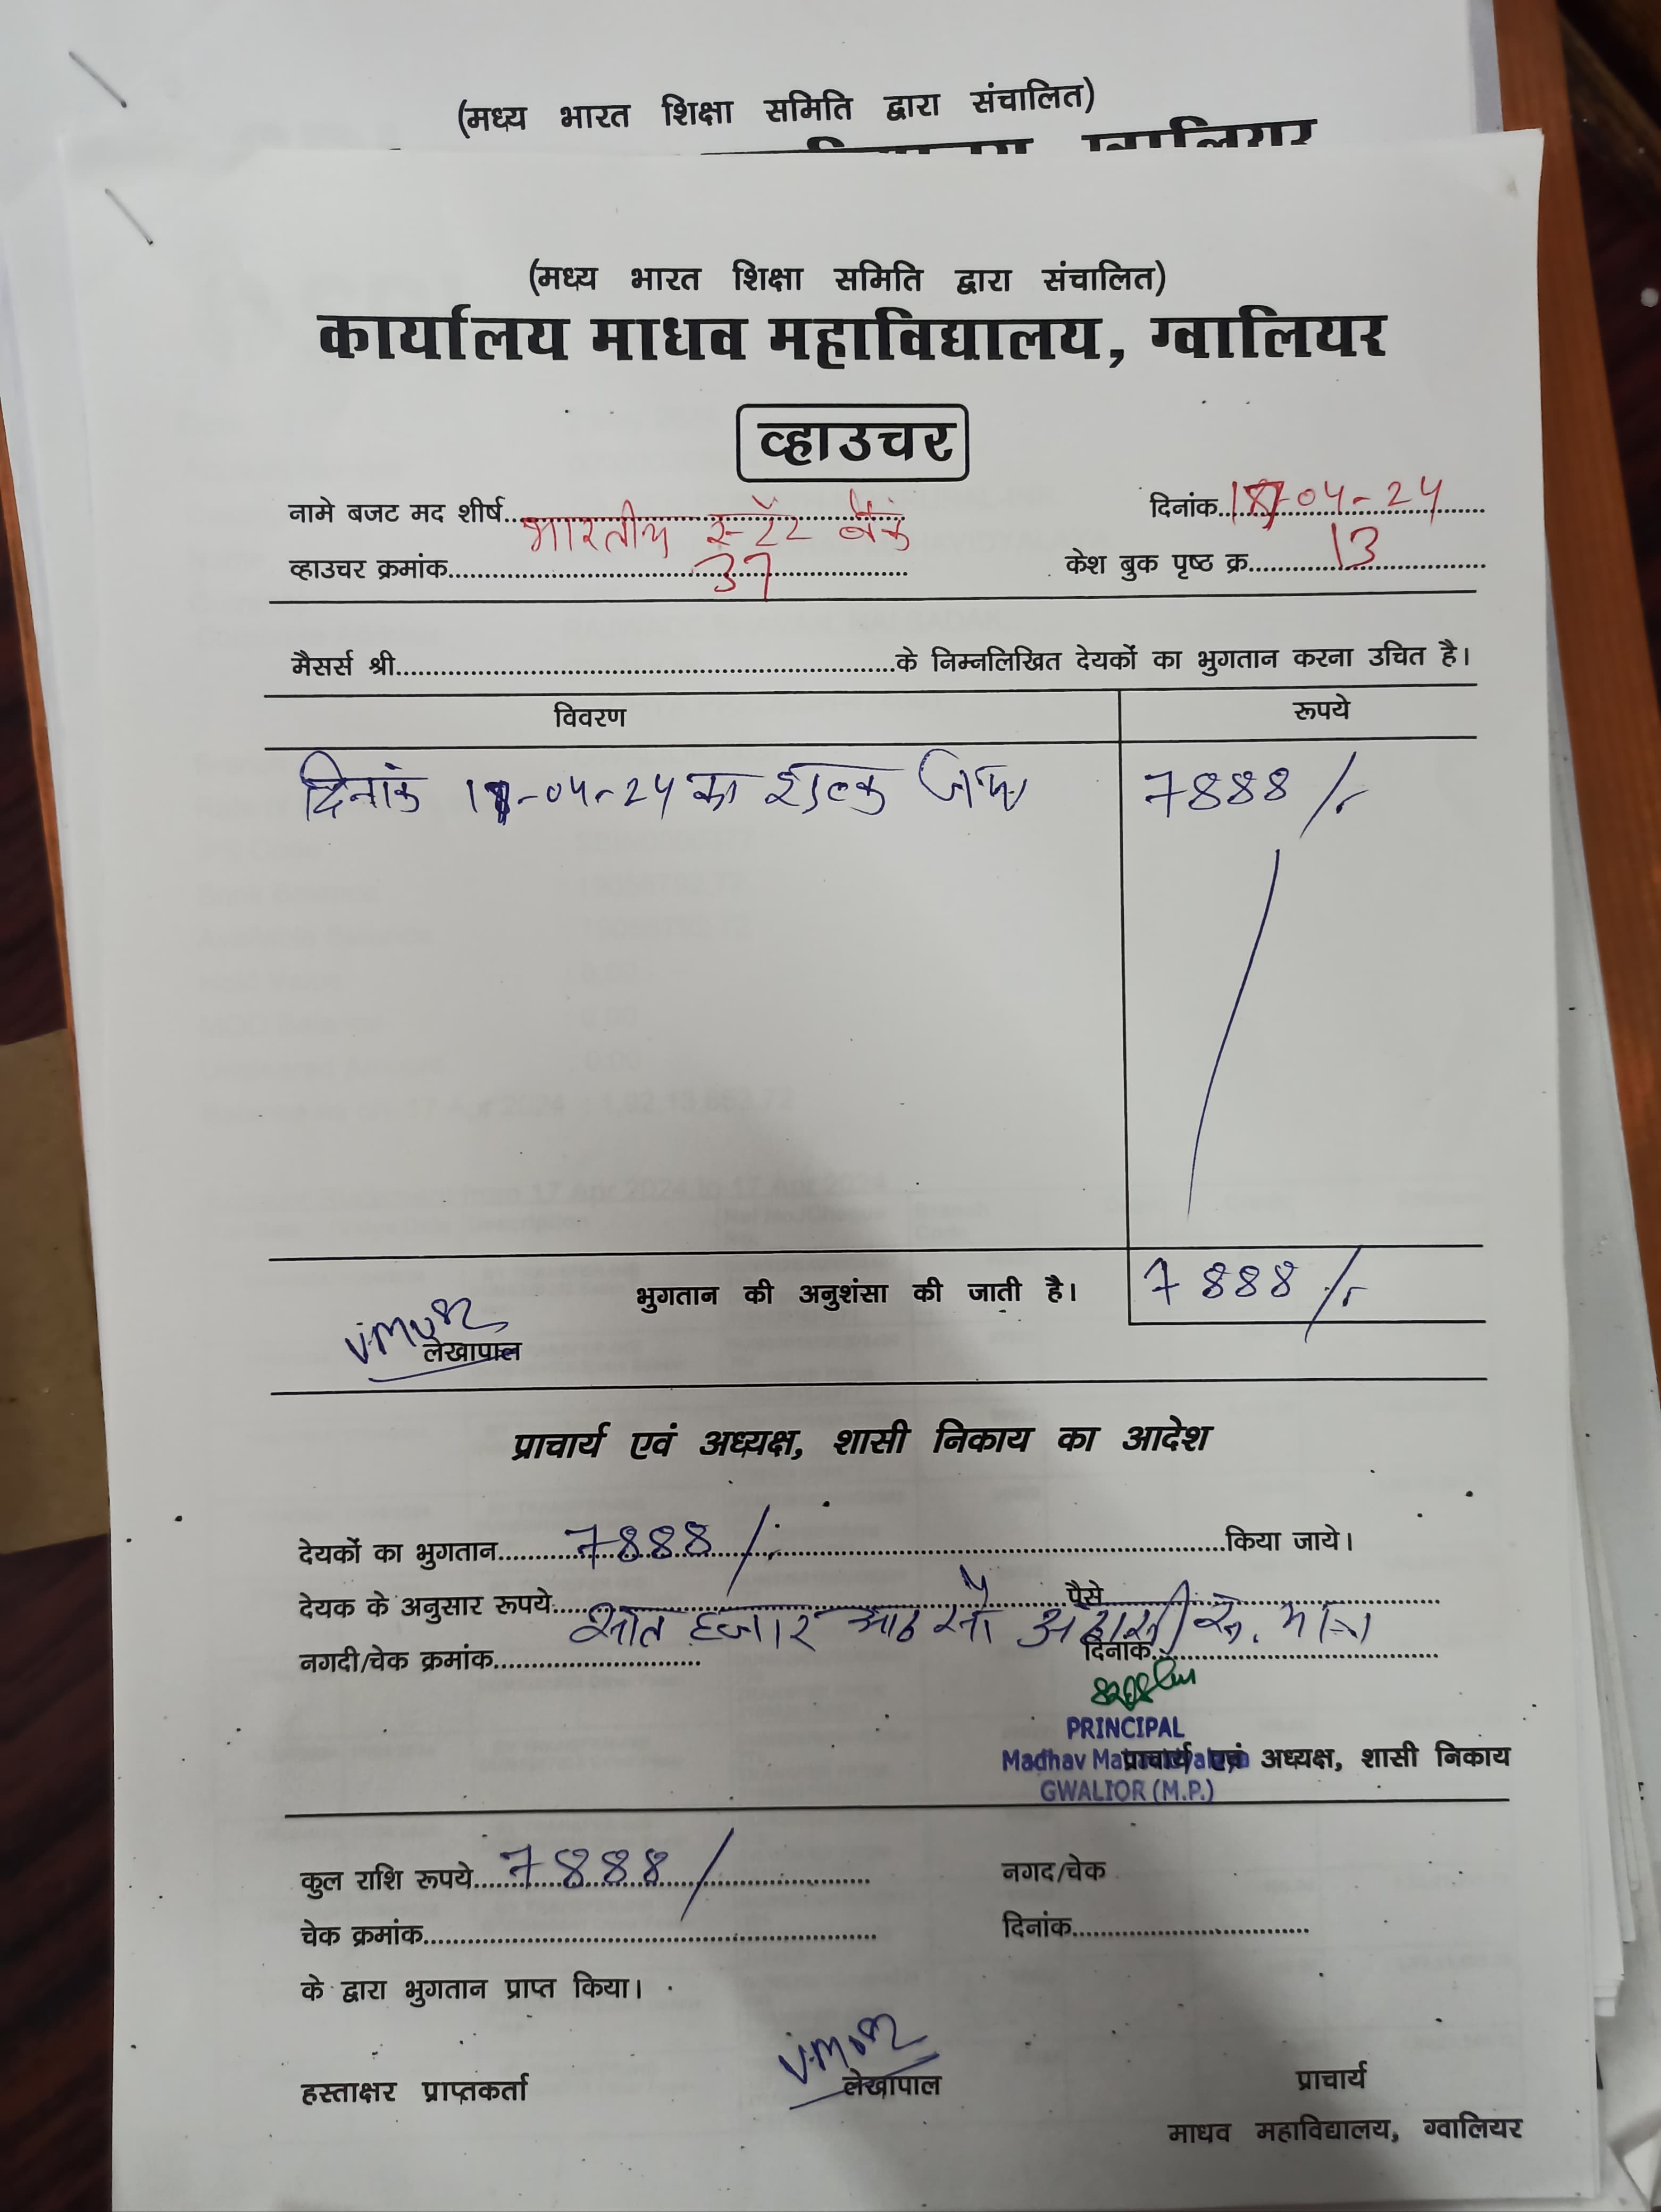 (मध्य भारत शिक्षा समिति द्वारा संचालित)
(मध्य भारत शिक्षा समिति द्वारा संचालित)
कार्यालय माधव महाविद्यालय, ग्वालियर
व्हाउचर
नामे बजट मद शीर्ष भारतीय स्टेट बैंक दिनांक -04-24
व्हाउचर क्रमांक 37 केश बुक पृष्ठ क्र. 13
मैसर्स श्री के निम्नलिखित देयकों का भुगतान करना उचित है।
विवरण रूपये
दिनांक -04-24 का शुल्क जमा 7888/-
भुगतान की अनुशंसा की जाती है। 7888/-
लेखापाल
प्राचार्य एवं अध्यक्ष, शासी निकाय का आदेश
देयकों का भुगतान 7888/- किया जाये।
देयक के अनुसार रूपये पैसे
सात हजार आठ सौ अठासी रू. मात्र
नगदी/चेक क्रमांक दिनांक
PRINCIPAL
Madhav Mahavidyalaya प्राचार्य एवं अध्यक्ष, शासी निकाय
GWALIOR (M.P.)
कुल राशि रूपये 7888/ नगद/चेक
चेक क्रमांक दिनांक
के द्वारा भुगतान प्राप्त किया।
हस्ताक्षर प्राप्तकर्ता लेखापाल प्राचार्य
माधव महाविद्यालय, ग्वालियर